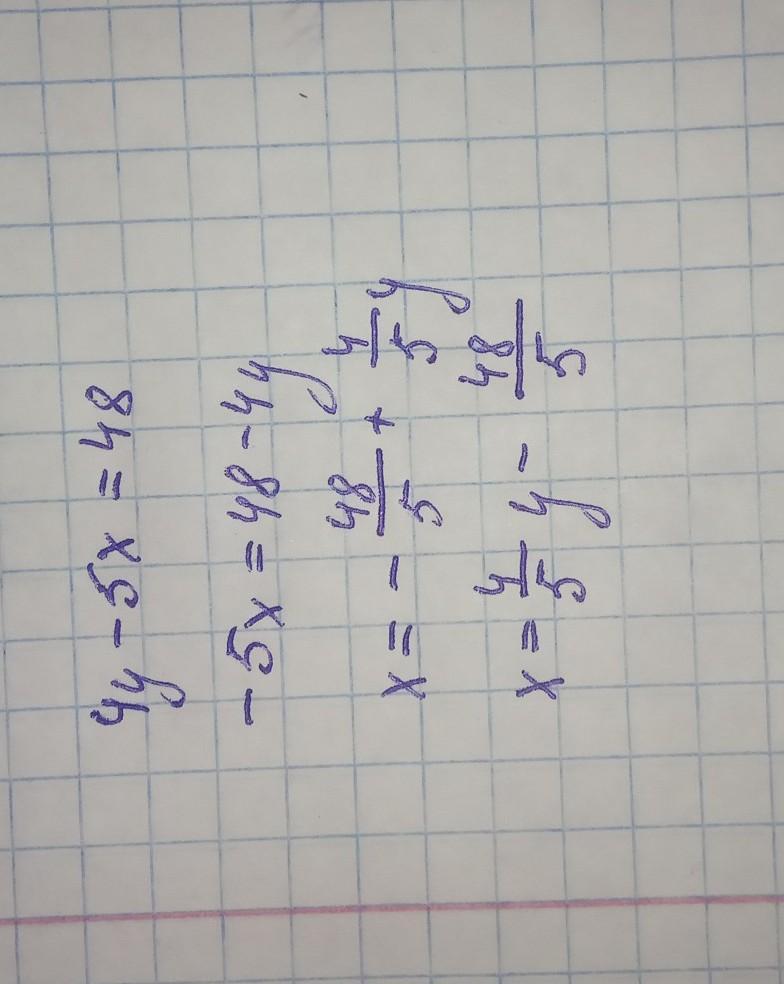 4y - 5x = 48
- 5x = 48 - 4y
x = - 48/5 + 4/5 y
x = 4/5 y - 48/5